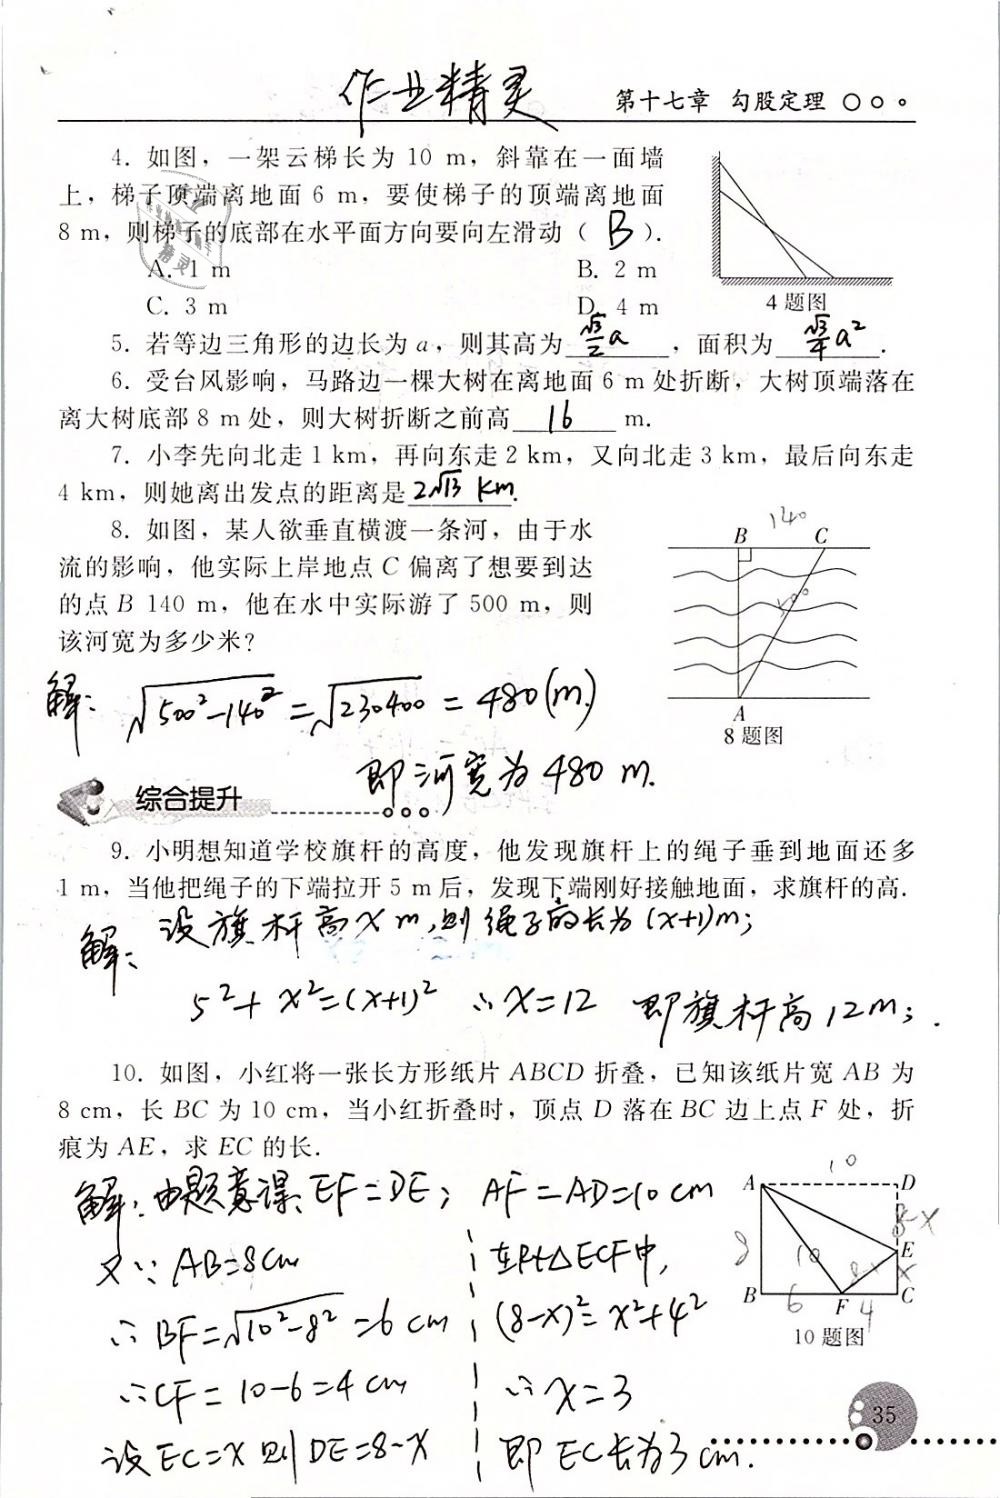 作业精灵
第十七章 勾股定理
4. 如图，一架云梯长为 10 m，斜靠在一面墙
上，梯子顶端离地面 6 m，要使梯子的顶端离地面
8 m，则梯子的底部在水平面方向要向左滑动（ B ）.
A. 1 m B. 2 m
C. 3 m D. 4 m
4 题图
5. 若等边三角形的边长为 a，则其高为 √3/2 a，面积为 √3/4 a².
6. 受台风影响，马路边一棵大树在离地面 6 m 处折断，大树顶端落在
离大树底部 8 m 处，则大树折断之前高 16 m.
7. 小李先向北走 1 km，再向东走 2 km，又向北走 3 km，最后向东走
4 km，则她离出发点的距离是 2√13 km.
8. 如图，某人欲垂直横渡一条河，由于水
流的影响，他实际上岸地点 C 偏离了想要到达
的点 B 140 m，他在水中实际游了 500 m，则
该河宽为多少米？
140
B C
500
A
8 题图
解: √500²-140² = √230400 = 480(m)
即河宽为480 m.
综合提升
9. 小明想知道学校旗杆的高度，他发现旗杆上的绳子垂到地面还多
1 m，当他把绳子的下端拉开 5 m 后，发现下端刚好接触地面，求旗杆的高.
解: 设旗杆高x m,则绳子的长为(x+1)m;
5²+x²=(x+1)² ∴x=12 即旗杆高12m;.
10. 如图，小红将一张长方形纸片 ABCD 折叠，已知该纸片宽 AB 为
8 cm，长 BC 为 10 cm，当小红折叠时，顶点 D 落在 BC 边上点 F 处，折
痕为 AE，求 EC 的长.
解: 由题意得: EF=DE; AF=AD=10cm
又∵AB=8cm
∴BF=√10²-8²=6cm
∴CF=10-6=4cm
设EC=x 则DE=8-x
在Rt△ECF中,
(8-x)²=x²+4²
∴x=3
即EC长为3cm.
10
A D
8-x
8 10 8-x x E
B 6 F 4 C
10 题图
35